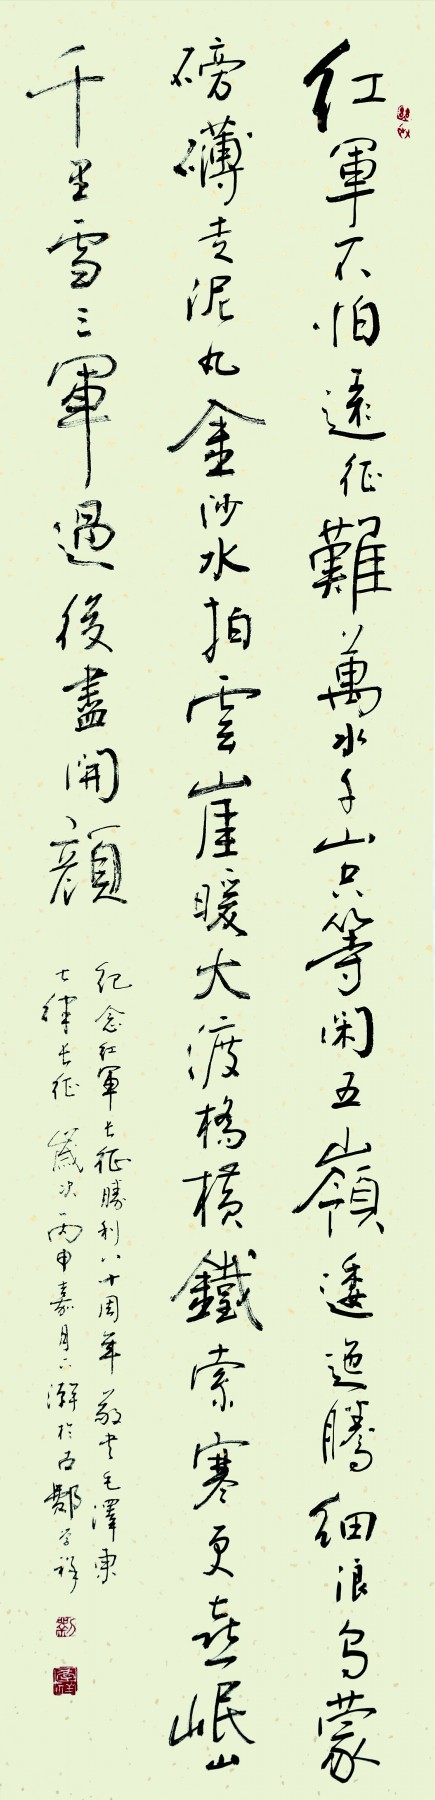 紅軍不怕遠征難萬水千山只等閑五嶺逶迤騰細浪烏蒙
磅礴走泥丸金沙水拍雲崖暖大渡橋橫鐵索寒更喜岷山
千里雪三軍過後盡開顏
紀念紅軍長征勝利八十周年敬书毛澤東
七律長征 歲次丙申嘉月上澣於古